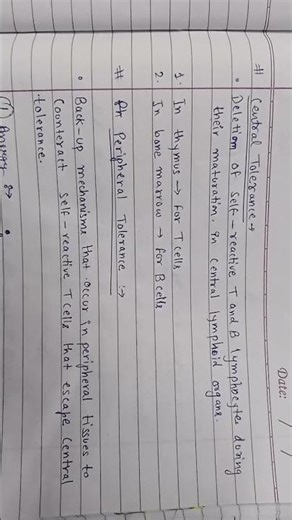 Date: / /
# Central Tolerance →
• Deletion of self-reactive T and B lymphocyte during
their maturation in central lymphoid organs.
1. In thymus → for T cells
2. In bone marrow → for B cells
# Peripheral Tolerance :→
• Back-up mechanisms that occur in peripheral tissues to
counteract self-reactive T cells that escape central
tolerance.
① Anergy :→